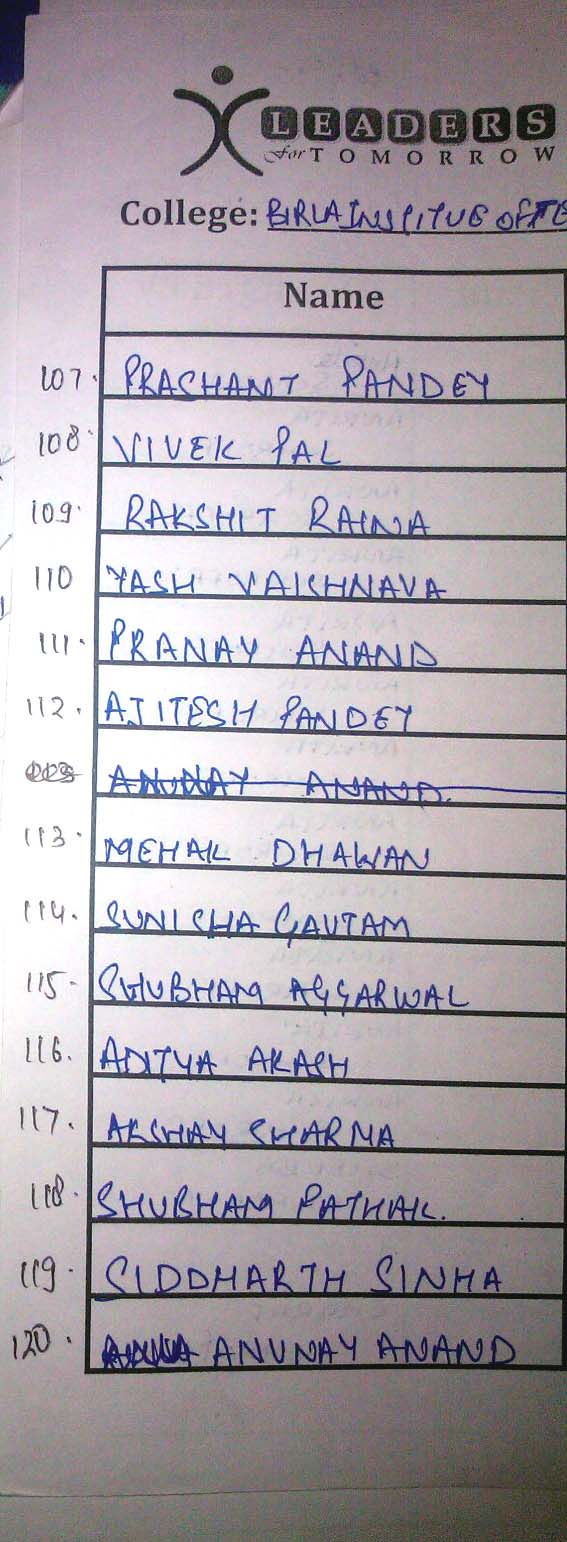 LEADERS
for TOMORROW
College: BIRLA INSPITUE OF TE
Name
107. PRACHANT PANDEY
108. VIVEK PAL
109. RAKSHIT RAINA
110 YASH VAISHNAVA
111. PRANAY ANAND
112. AJITESH PANDEY
ANUNAY ANAND.
113. MEHAK DHAWAN
114. SUNISHA GAUTAM
115- SHUBHAM AGGARWAL
116. ADITYA AKASH
117. AKSHAY SHARMA
118. SHUBHAM PATHAK.
119. SIDDHARTH SINHA
120. ANUNAY ANAND